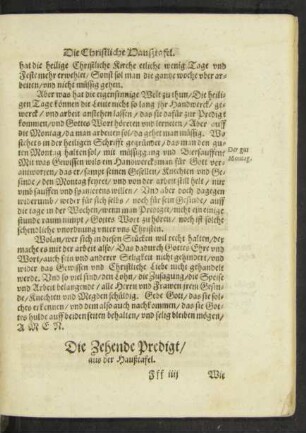 Die Christliche Haußtafel.
hat die heilige Christliche Kirche etliche wenig Tage vnd
Feste mehr erwehlet / Sonst sol man die gantze woche vber ar-
beiten / vnd nicht müssig gehen.
Aber was hat die eigensinnige Welt zu thun / Die heili-
gen Tage können die Leute nicht so lang jhr Handwerck / ge-
werck / vnd arbeit anstehen lassen / das sie dafür zur Predigt
kommen / vnd Gottes Wort höreten vnd lerneten / Aber auff
die Montag / da man arbeiten sol / da gehet man müssig. Wo
stehets in der heiligen Schrifft gegründet / das man den gu-
ten Montag halten sol / mit müssiggang vnd Biersauffen?
Mit was Gewissen wils ein Handwercksman für Gott ver-
antworten / das er sampt seinen Gesellen / Knechten vnd Ge-
sinde / den Montag feyret / vnd von der arbeit still helt / nur
vnd sauffen vnd spaciren wollen / Vnd aber doch dagegen
widerumb / weder für sich selbs / noch für sein Gesinde / auff
die tage in der Wochen / wenn man Prediget / nicht ein einige
stunde wenn nimpt / Gottes Wort zu hören / noch ist solche
schendliche vnordnung vnter vns Christen.
Wolan / wer sich in diesen Stücken wil recht halten / der
mache es mit der arbeit also / Das dadurch Gottes Ehr vnd
Wort / auch sein vnd anderer Seligkeit nicht gehindert / vnd
wider das Gewissen vnd Christliche Liebe nicht gehandelt
werde. Vnd so viel sey von dem Lohn / die Zusagung / die Speise
vnd Arbeit belangende / alle Herrn vnd Frawen jrem Gesin-
de / Knechten vnd Megden schüldig. Gebe Gott / das sie sol-
ches erkennen / vnd dem also auch nachkommen / das sie Got-
tes hulde auff beiden seiten behalten / vnd selig bleiben mögen /
A M E N.
Der gut
Montag.
Die Zehende Predigt /
aus der Haußtafel.
Fff iiij
Wie